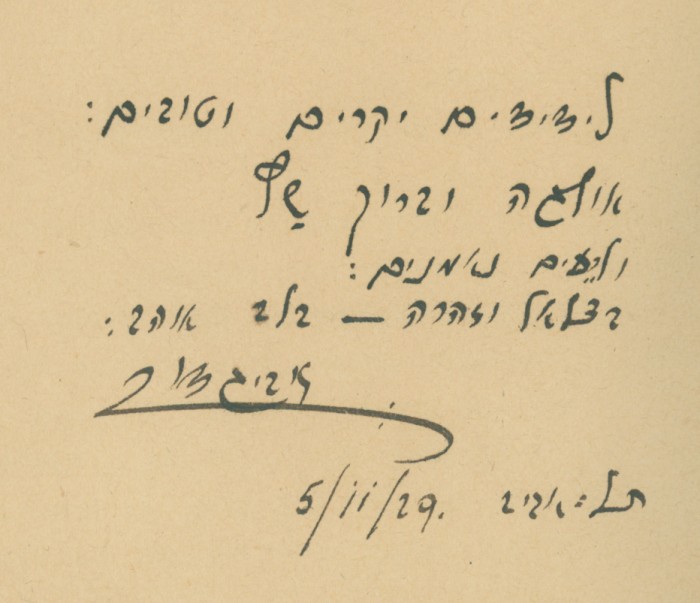 לידידים יקרים וטובים:
אולגה וברוך שַׁץ
ולרֵעים נאמנים:
בצלאל וזהרה – בלב אוהב:
אביגדור
תל־אביב 5/11/29.